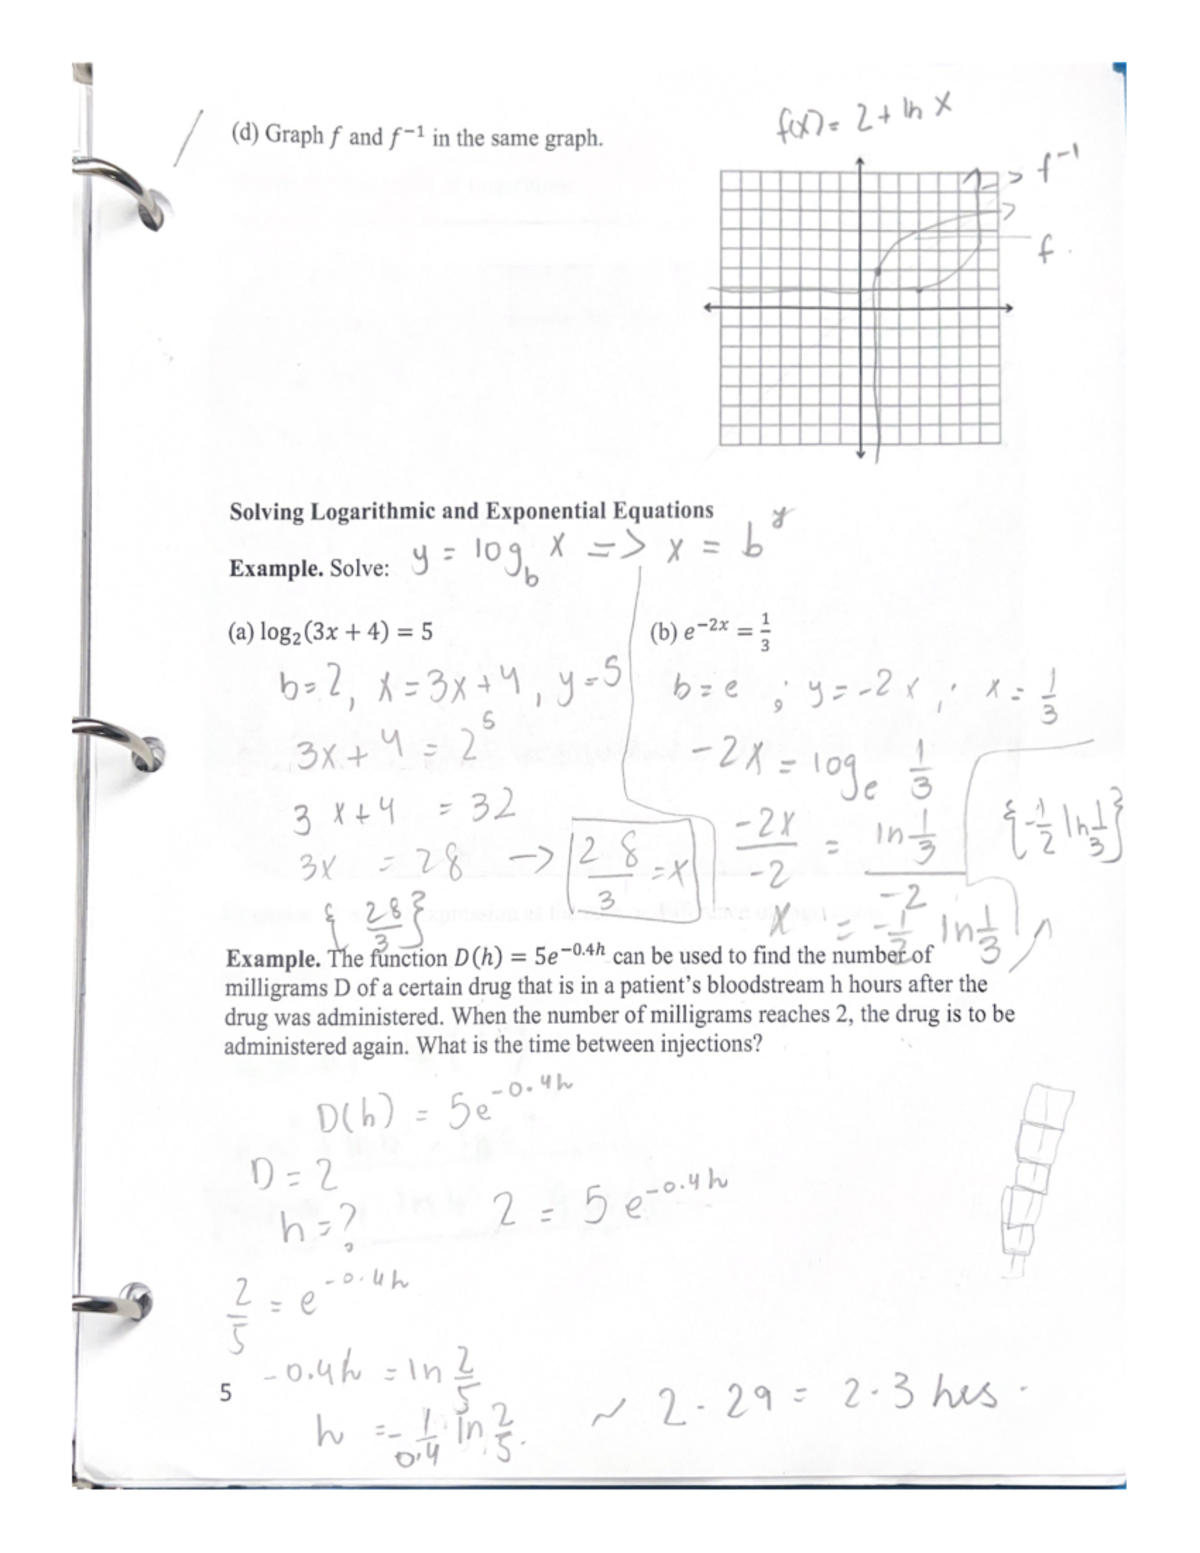 (d) Graph f and f⁻¹ in the same graph.
f(x) = 2 + ln x
f⁻¹
f.
Solving Logarithmic and Exponential Equations
Example. Solve: y = log_b x => x = b^y
(a) log₂(3x + 4) = 5
b=2, x=3x+4, y=5
3x+4 = 2⁵
3x+4 = 32
3x = 28 -> 28/3 = x
{28/3}
(b) e^(-2x) = 1/3
b=e ; y=-2x ; x=1/3
-2x = log_e 1/3
-2x/-2 = ln 1/3 / -2
x = -1/2 ln 1/3
{-1/2 ln 1/3}
Example. The function D(h) = 5e^(-0.4h) can be used to find the number of
milligrams D of a certain drug that is in a patient's bloodstream h hours after the
drug was administered. When the number of milligrams reaches 2, the drug is to be
administered again. What is the time between injections?
D(h) = 5e^(-0.4h)
D = 2
h = ?
2 = 5e^(-0.4h)
2/5 = e^(-0.4h)
-0.4h = ln 2/5
h = -1/0.4 ln 2/5.
~ 2.29 = 2.3 hrs.
5